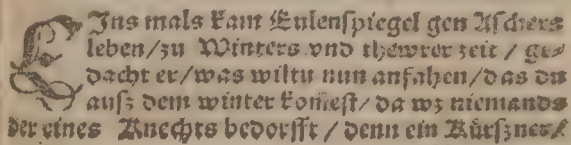 EIns mals kam Eulenspiegel gen Aschers
leben/zu Winters vnd thewrer zeit / ge⸗
dacht er/was wiltu nun anfahen/das du
auß dem winter komest/ da wz niemands
der eines Knechts bedorfft / denn ein Kürßner/